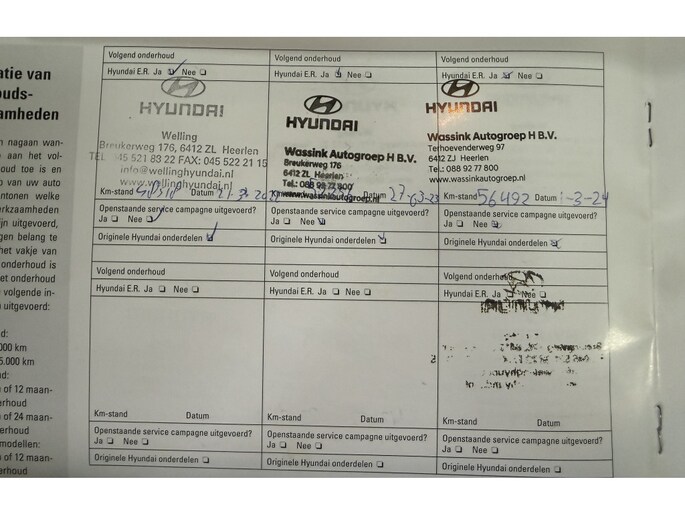 atie van
ouds-
amheden
n nagaan wan-
aan het vol-
oud toe is en
van uw auto
ntonen welke
erkzaamheden
ijn uitgevoerd,
ngen belang te
het vakje van
onderhoud is
et onderhoud
volgende in-
uitgevoerd:
d:
000 km
5.000 km
nd:
n of 12 maan-
erhoud
n of 24 maan-
erhoud
modellen:
n of 12 maan-
erhoud
Volgend onderhoud
Hyundai E.R. Ja Nee
HYUNDAI
Welling
Breukerweg 176, 6412 ZL Heerlen
TEL 045 521 83 22 FAX: 045 522 21 15
info@wellinghyundai.nl
www.wellinghyundai.nl
Km-stand Datum
Openstaande service campagne uitgevoerd?
Ja Nee
Originele Hyundai onderdelen
Volgend onderhoud
Hyundai E.R. Ja Nee
HYUNDAI
Wassink Autogroep H B.V.
Breukerweg 176
6412 ZL Heerlen
Tel.: 088 92 77 800
www.wassinkautogroep.nl
Km-stand 27-03-23
Openstaande service campagne uitgevoerd?
Ja Nee
Originele Hyundai onderdelen
Volgend onderhoud
Hyundai E.R. Ja Nee
HYUNDAI
Wassink Autogroep H B.V.
Terhoevenderweg 97
6412 ZJ Heerlen
Tel.: 088 92 77 800
www.wassinkautogroep.nl
Km-stand 56492 1-3-24
Openstaande service campagne uitgevoerd?
Ja Nee
Originele Hyundai onderdelen
Volgend onderhoud
Hyundai E.R. Ja Nee
Km-stand Datum
Openstaande service campagne uitgevoerd?
Ja Nee
Originele Hyundai onderdelen
Volgend onderhoud
Hyundai E.R. Ja Nee
Km-stand Datum
Openstaande service campagne uitgevoerd?
Ja Nee
Originele Hyundai onderdelen
Volgend onderhoud
Hyundai E.R. Ja Nee
Km-stand Datum
Openstaande service campagne uitgevoerd?
Ja Nee
Originele Hyundai onderdelen